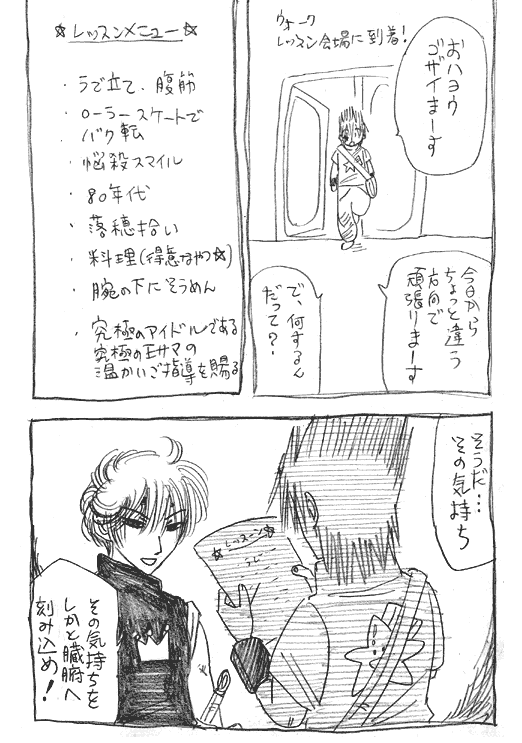 ウォーク
レッスン会場に到着！
おハヨウ
ゴザイまーす
今日から
ちょっと違う
方向で
頑張りまーす
で、何するん
だって？
☆レッスンメニュー☆
・うで立て、腹筋
・ローラースケートで
バク転
・悩殺スマイル
・80年代
・落穂拾い
・料理(得意なやつ☆)
・腕の下にそうめん
・究極のアイドルである
究極の王サマの
温かいご指導を賜る
そうだ…
その気持ち
☆レッスーン☆
その気持ちを
しかと臓腑へ
刻み込め！